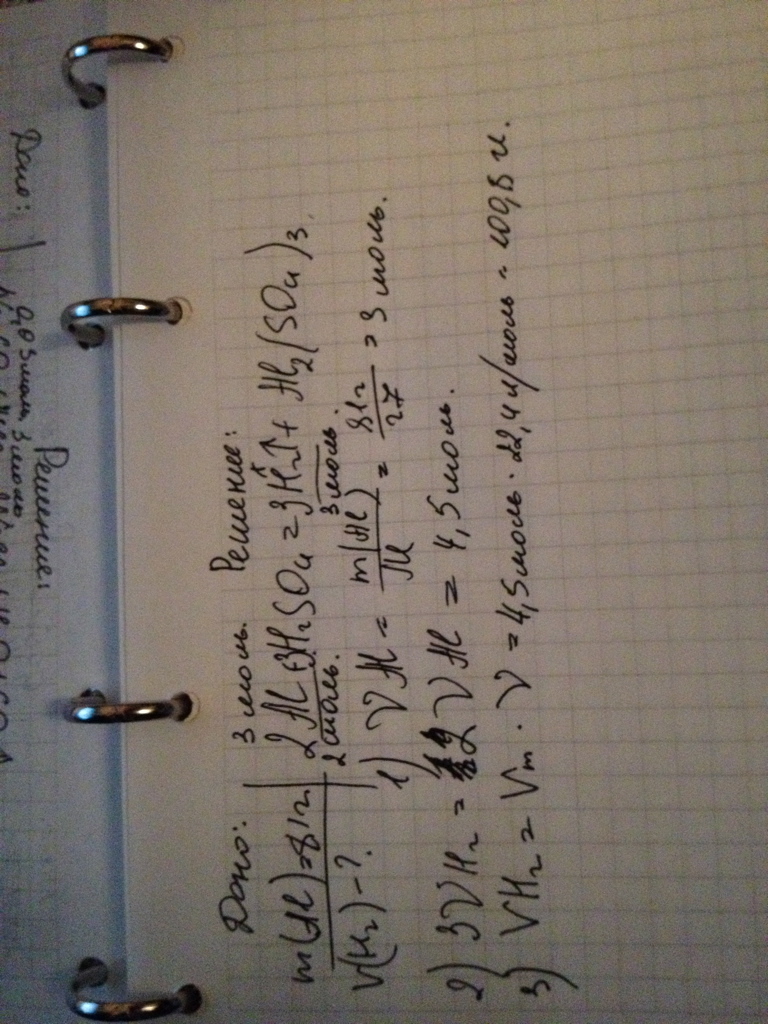 Дано:
m(Al)=81г
V(H₂)-?
Решение:
3 моль.
2Al+3H₂SO₄=3H₂↑+Al₂(SO₄)₃.
2 моль. 3 моль.
1) νAl = m(Al)/M = 81г/27 = 3 моль.
2) 3νH₂ = 2νAl = 4,5 моль.
3) VH₂ = Vm · ν = 4,5 моль · 22,4 л/моль = 100,8 л.
Дано:
Решение:
3 моль